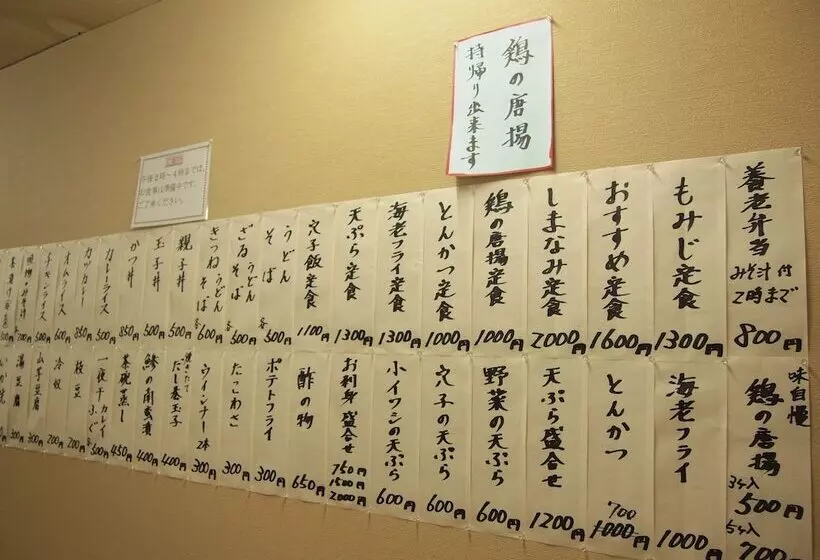 鶏の唐揚
持帰り出来ます
午後2時〜4時までは、
お食事は準備中です。
ご了承ください。
養老弁当 みそ汁付 2時まで 800円
もみじ定食 1300円
おすすめ定食 1600円
しまなみ定食 2000円
鶏の唐揚定食 1000円
とんかつ定食 1000円
海老フライ定食 1300円
天ぷら定食 1300円
穴子飯定食 1100円
うどん そば 各500円
ざるうどん そば 各500円
きつねうどん そば 各600円
親子丼 500円
玉子丼 500円
かつ丼 850円
カレーライス 500円
カツカレー 850円
オムライス 600円
チキンライス 500円
味自慢 鶏の唐揚 3ケ入 500円 5ケ入 700円
海老フライ 1000円
とんかつ 700 1000円
天ぷら盛合せ 1200円
野菜の天ぷら 600円
穴子の天ぷら 600円
小イワシの天ぷら 600円
お刺身盛合せ 750円 1500円 2000円
酢の物 650円
ポテトフライ 300円
たこわさ 300円
ウインナー 2本 300円
焼きたて だし巻玉子 400円
鯵の南蛮漬 400円
茶碗蒸し 450円
一夜干 カレイ ふぐ 各500円
枝豆 200円
冷奴 200円
山芋豆腐 300円
湯豆腐 300円